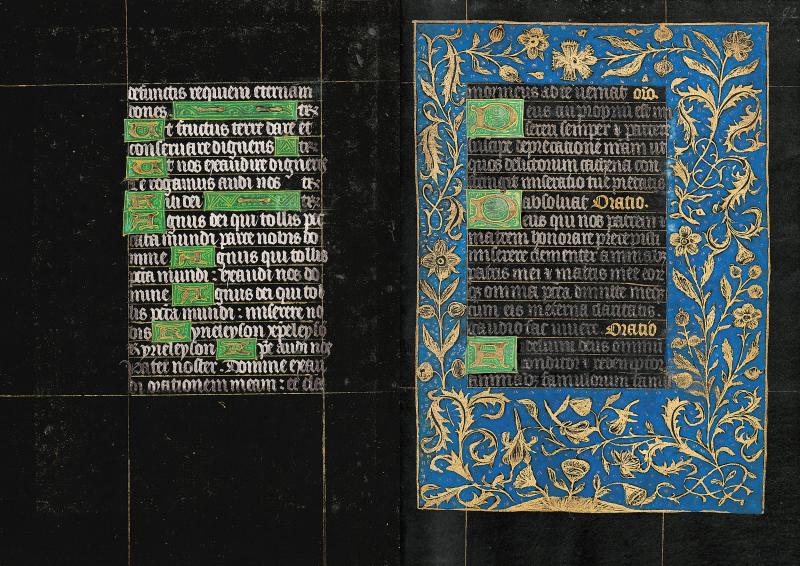 defunctis requiem eternam
dones. te r
Ut fructus terre dare et
conservare digneris te r
Ut nos exaudire digneris
te rogamus audi nos te r
Fili dei te r
Agnus dei qui tollis pec
cata mundi parce nobis do
mine Agnus qui tollis
pcta mundi : exaudi nos do
mine Agnus dei qui tol
lis pcta mundi : miserere no
bis Kyrieleyson xpeleyso
Kyrieleyson Xpe audi nos
Pater noster . Domine exau
di orationem meam : et cla
mor meus ad te veniat oro.
Deus cui propriu est mi
sereri semper et parcere
suscipe deprecatione nram ut
quos delictorum cathena con
miseratio tue pietatis
absolvat Oratio.
Deus qui nos patrem et
matrem honorare precepisti
miserere clementer animabus
patris mei et matris mee eor
qz omnia pcta dimitte meqz
cum eis in eterna claritatis
gaudio fac vivere. Oratio
Fidelium deus omnium
conditor et redemptor
animabz famulorum famu